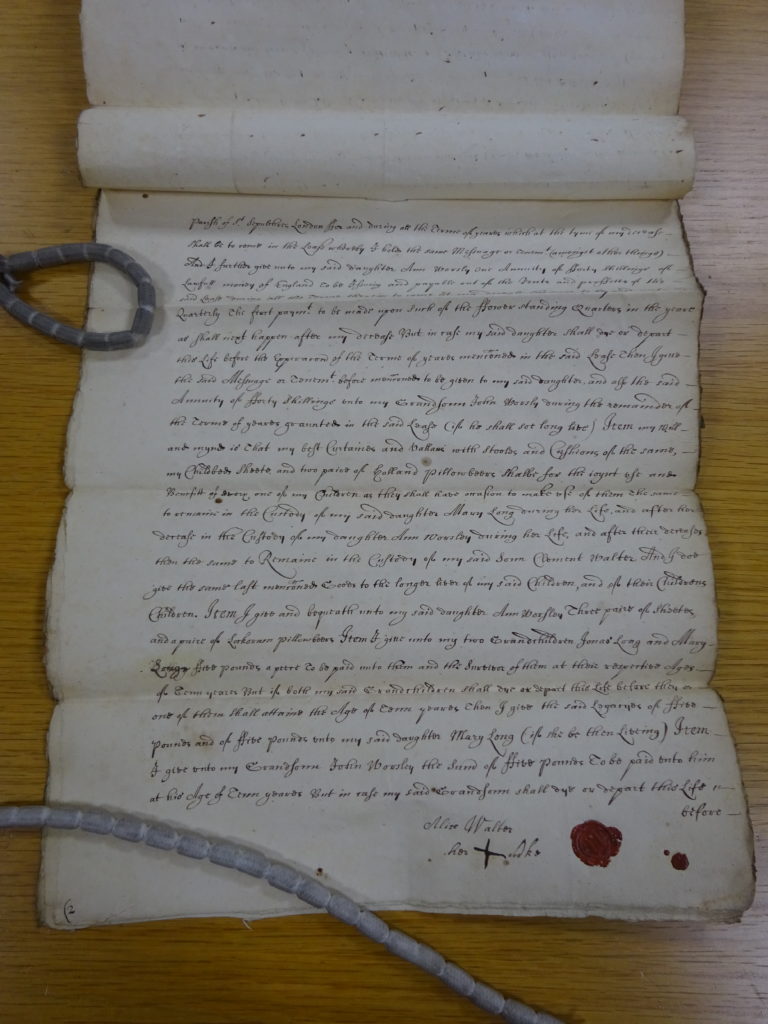 Parish of St. Sepulchres London ffor and during all the Terme of yeares which at the tyme of my decease
shall be to come in the Lease whereby I hold the same Messuage or Tenemt. (amongst other things)
And I further give unto my said daughter Ann Worsly One Annuity of fforty shillings of
Lawfull money of England To be yssuing and payable out of the Rents and proffitts of the
said Lease during all the Terme
Quarterly The first paymt. to be made upon such of the ffower standing Quarters in the yeare
as shall next happen after my decease But in case my said daughter shall dye or depart
this Life before the Expiracon of the Terme of yeares mencõned in the said Lease Then I give
the said Messuage or Tenemt. before mencõned to be given to my said daughter, and also the said
Annuity of fforty shillings unto my Grandsonn John Worsly during the remainder of
the Terme of yeares graunted in the said Lease (if he shall soe long live) Item my Will
and mynd is That my best Curtaines and Vallans with stooles and Cushions of the same,
my Childbed sheete and two paire of Holland Pillowbeers shalbe for the ioynt use and
Benefitt of every one of my Children as they shall have occasion to make use of them The same
to remaine in the Custody of my said daughter Mary Long during her Life, and after her
decease in the Custody of my daughter Ann Worsley during her Life, and after their deceases
then the same to Remaine in the Custody of my said Sonn Clement Walter And I doe
give the same last mencõned Goods to the longer liver of my said Children, and of their Childrens
Children. Item I give and bequeath unto my said daughter Ann Worsley Three paire of sheetes
and a paire of Lockoram pillowbeers Item I give unto my two Grandchildren Jonas Long and Mary
Long ffive pounds apeece To be paid unto them and the Survivor of them at their respective Ages
of Tenn yeares But if both my said Grandchildren shall dye or depart this Life before they or
one of them shall attaine the Age of Tenn yeares Then I give the said Legacyes of ffive
pounds and of ffive pounds unto my said daughter Mary Long (if she be then Liveing) Item
I give unto my Grandsonn John Worsley the Sum̄ of ffive pounds To be paid unto him
at his Age of Tenn yeares But in case my said Grandsonn shall dye or depart this Life
before
Alice Walter
her mke
(2